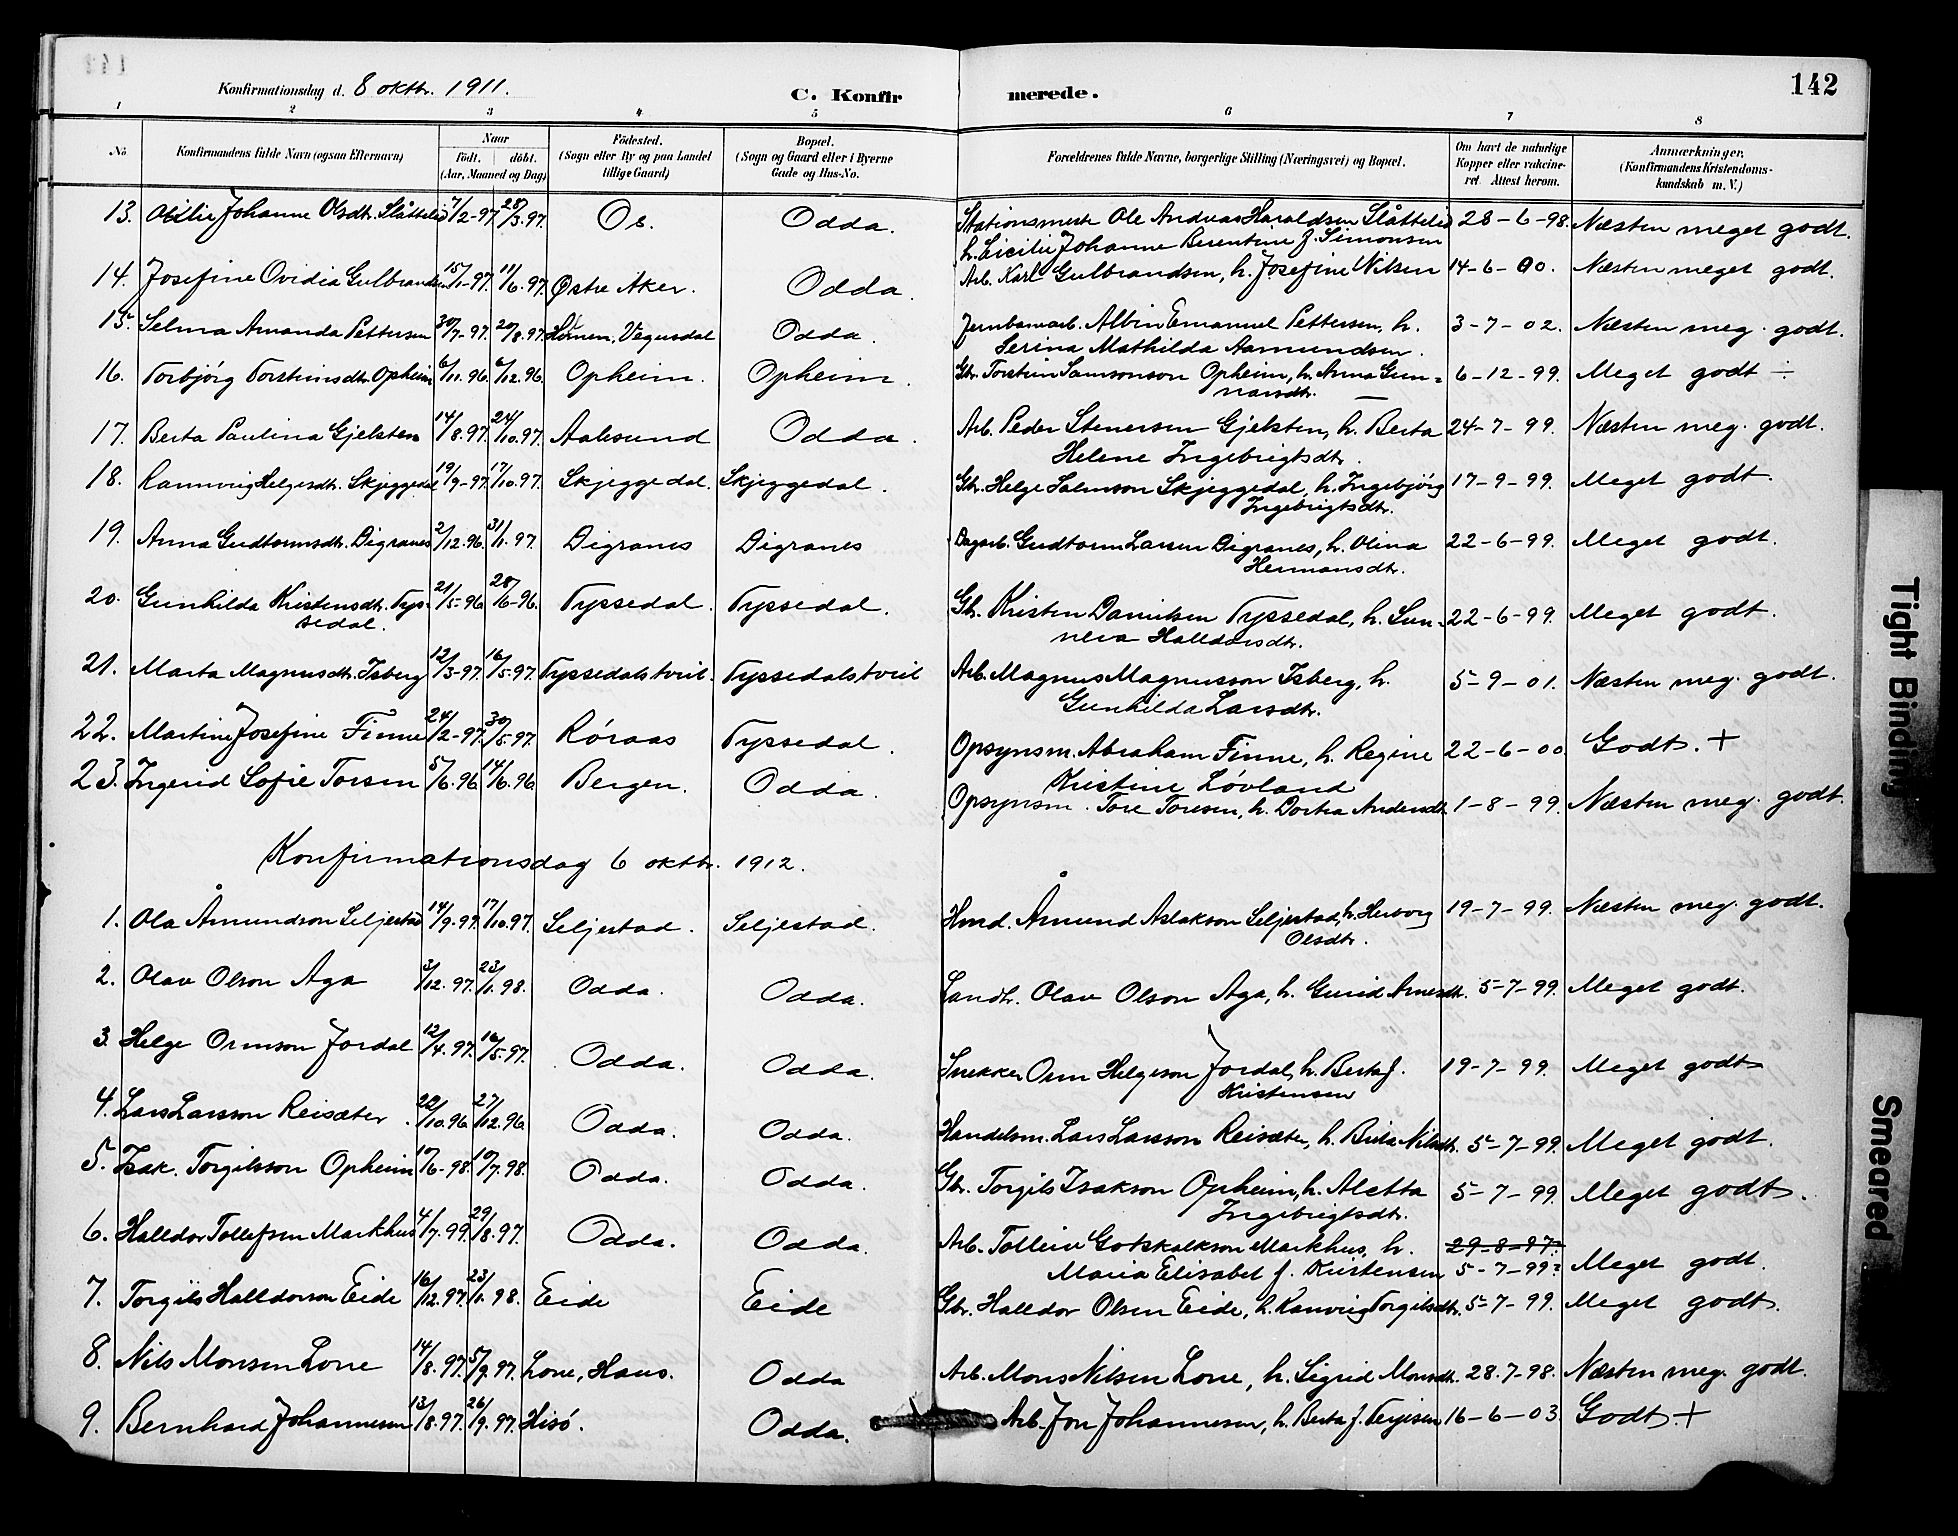 142
Konfirmationsdag d. 8 oktbr. 1911.
C. Konfirmerede.
1 2 3 4 5 6 7 8
No
Konfirmandens fulde Navn (ogsaa Efternavn)
Naar
født. døbt.
(Aar, Maaned og Dag)
Födested.
(Sogn eller By og paa Landet
tillige Gaard)
Bopæl.
(Sogn og Gaard eller i Byerne
Gade og Hus-No.
Forældrenes fulde Navne, borgerlige Stilling (Næringsvei) og Bopæl.
Om havt de naturlige
Kopper eller vakcine-
ret. Attest herom.
Anmærkninger.
(Konfirmandens Kristendoms-
kundskab m. V.)
13. Johanne Olsdtr. Slåttelid 7/2-97 28/3.97. Os. Odda. Stationsmestr Ole Andreas Haraldsen Slåttelid 28-6-98. Næsten meget godt.
h. Cicilie Johanne Berentine f. Simonsen
14. Josefine Ovidia Gulbrandsen 15/1-97. 11/6.97. Østre Aker. Odda. Arb. Karl Gulbrandsen, h. Josefine Nilsen 14-6-00. Næsten meget godt.
15. Selma Amanda Pettersen 30/7-97. 29/8.97. Vegusdal Odda. Jernbanearb. Albin Emanuel Pettersen, h. 3-7-02. Næsten meg. godt.
Serina Mathilda Aamundsen.
16. Torbjörg Torsteinsdtr. Opheim 6/11.96. 6/12.96. Opheim. Opheim. Gbr. Torstein Samsonson Opheim, h. Anna Gun- 6-12-99. Meget godt ÷
narsdtr.
17. Berta Paulina Gjelsten 14/8.97. 24/10.97. Aalesund Odda. Arb. Peder Stenersen Gjelsten, h. Berta 24-7-99. Næsten meg. godt.
Helene Ingebrigtsdtr.
18. Rannveig Helgesdtr. Skjeggedal 19/9-97. 17/10.97. Skjeggedal. Skjeggedal. Gbr. Helge Salmson Skjeggedal, h. Ingebjörg 17-9-99. Meget godt.
Ingebrigtsdtr.
19. Anna Gudtormsdtr. Digranes 2/12.96. 31/1.97. Digranes Digranes Dagarb. Gudtorm Larsen Digranes, h. Olina 22-6-99. Meget godt.
Hermansdtr.
20. Gunhilda Kristensdtr. Tys- 21/5-96 28/6-96. Tyssedal. Tyssedal. Gbr. Kristen Danielsen Tyssedal, h. Sun- 22-6-99. Meget godt.
sedal. neva Halldorsdtr.
21. Marta Magnusdtr. Isberg 12/3-97. 16/5-97. Tyssedalstveit. Tyssedalstveit Arb. Magnus Magnusson Isberg, h. 5-9-01. Næsten meg. godt.
Gunhilda Larsdtr.
22. Martine Josefine Finne 24/2-97. 30/5-97. Røraas Tyssedal. Opsynsm. Abraham Finne, h. Regine 22-6-00. Godt. +
Kristine Løvland
23. Ingerid Sofie Torsen 5/6.96. 14/6.96. Bergen. Odda. Opsynsm. Tore Toresen, h. Dortea Andersdtr. 1-8-99. Næsten meg. godt.
Konfirmationsdag 6 oktbr. 1912.
1. Ola Åmundson Seljestad 14/9.97. 17/10.97. Seljestad. Seljestad. Hmd. Åmund Aslakson Seljestad, h. Herborg 19-7-99. Næsten meg. godt.
Olsdtr.
2. Olav Olson Aga 3/12.97. 23/1.98. Odda. Odda. Landh. Olav Olson Aga, h. Gurid Arnesdtr. 5-7-99. Meget godt.
3. Helge Ormson Jordal 12/4.97. 16/5-97. Odda. Odda. Snekker Orm Helgeson Jordal, h. Berta f. 19-7-99. Meget godt
Kristensen
4. Lars Larsson Reisæter 22/10.96 27/12.96. Odda. Odda. Handelsm. Lars Larsson Reisæter, h. Brita Nilsdtr. 5-7-99. Meget godt.
5. Isak Torgilsson Opheim 10/6-98. 10/7.98. Odda. Odda. Gbr. Torgils Isakson Opheim, h. Aletta 5-7-99. Meget godt.
Ingebrigtsdtr.
6. Halldor Tollefsen Markhus 4/7.99. 29/8.97. Odda. Odda. Arb. Tolleiv Gotskalkson Markhus, h. 29-8-97.
Maria Elisabet f. Kristensen 5-7-99? Meget godt.
7. Torgils Halldorson Eide 16/12.97. 23/1.98. Eide Eide Gbr. Halldor Olsen Eide, h. Ranveig Torgilsdtr. 5-7-99. Meget godt.
8. Nils Monsen Lone 14/8.97. 5/9.97. Lone, Haus. Odda Arb. Mons Nilsen Lone, h. Sigrid Monsdtr. 28.7-98. Næsten meg. godt.
9. Bernhard Johannesen 13/8.97. 26/9.97. Hisö. Odda. Arb. Jon Johannesen, h. Berta f. Terjesen 16-6-03. Godt. +
Tight Binding
Smeared